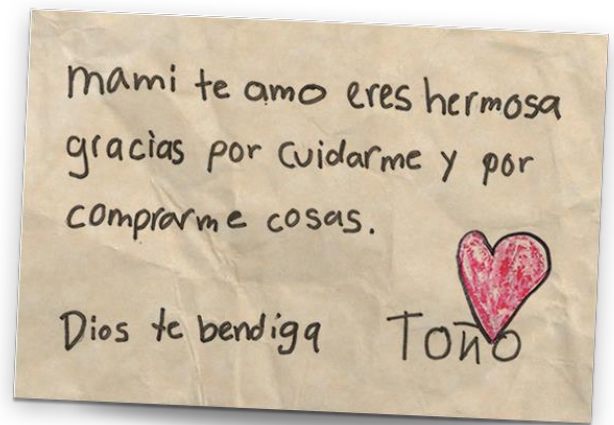 mami te amo eres hermosa
gracias por cuidarme y por
comprarme cosas.
Dios te bendiga Toño